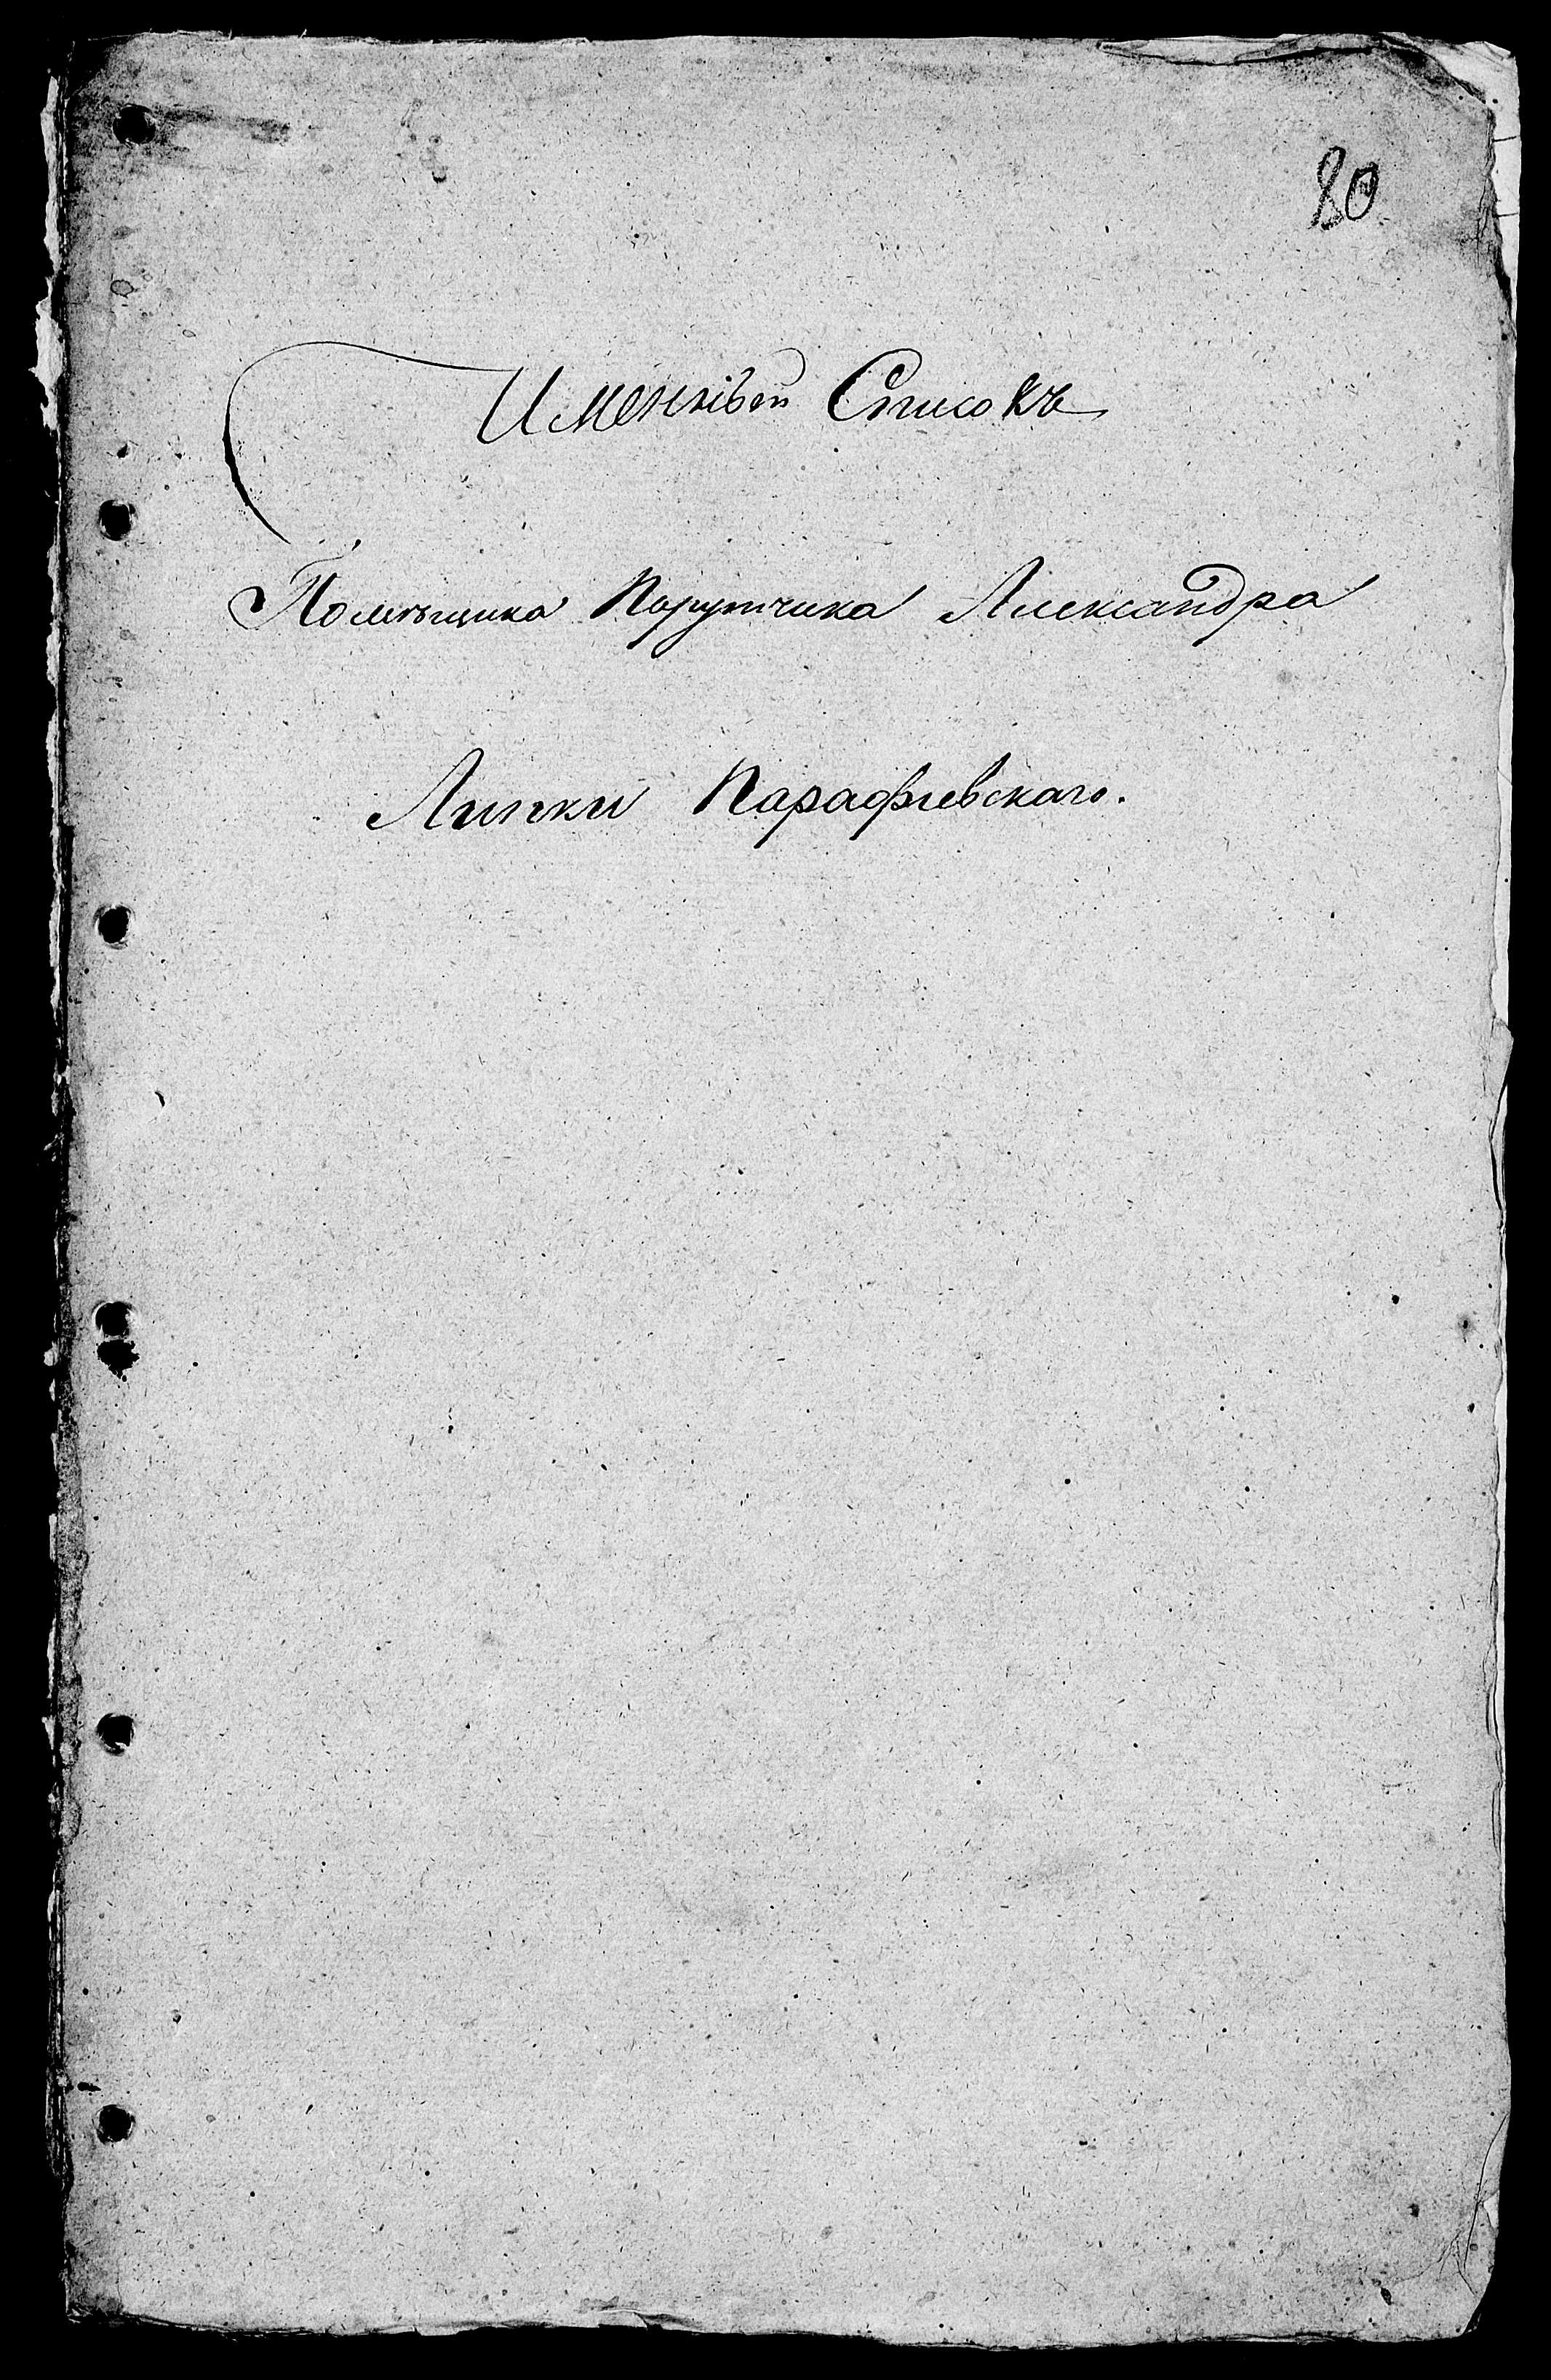 80
Именный Списокъ
Помѣщика Порутчика Александра
Липки Парафіевскаго.